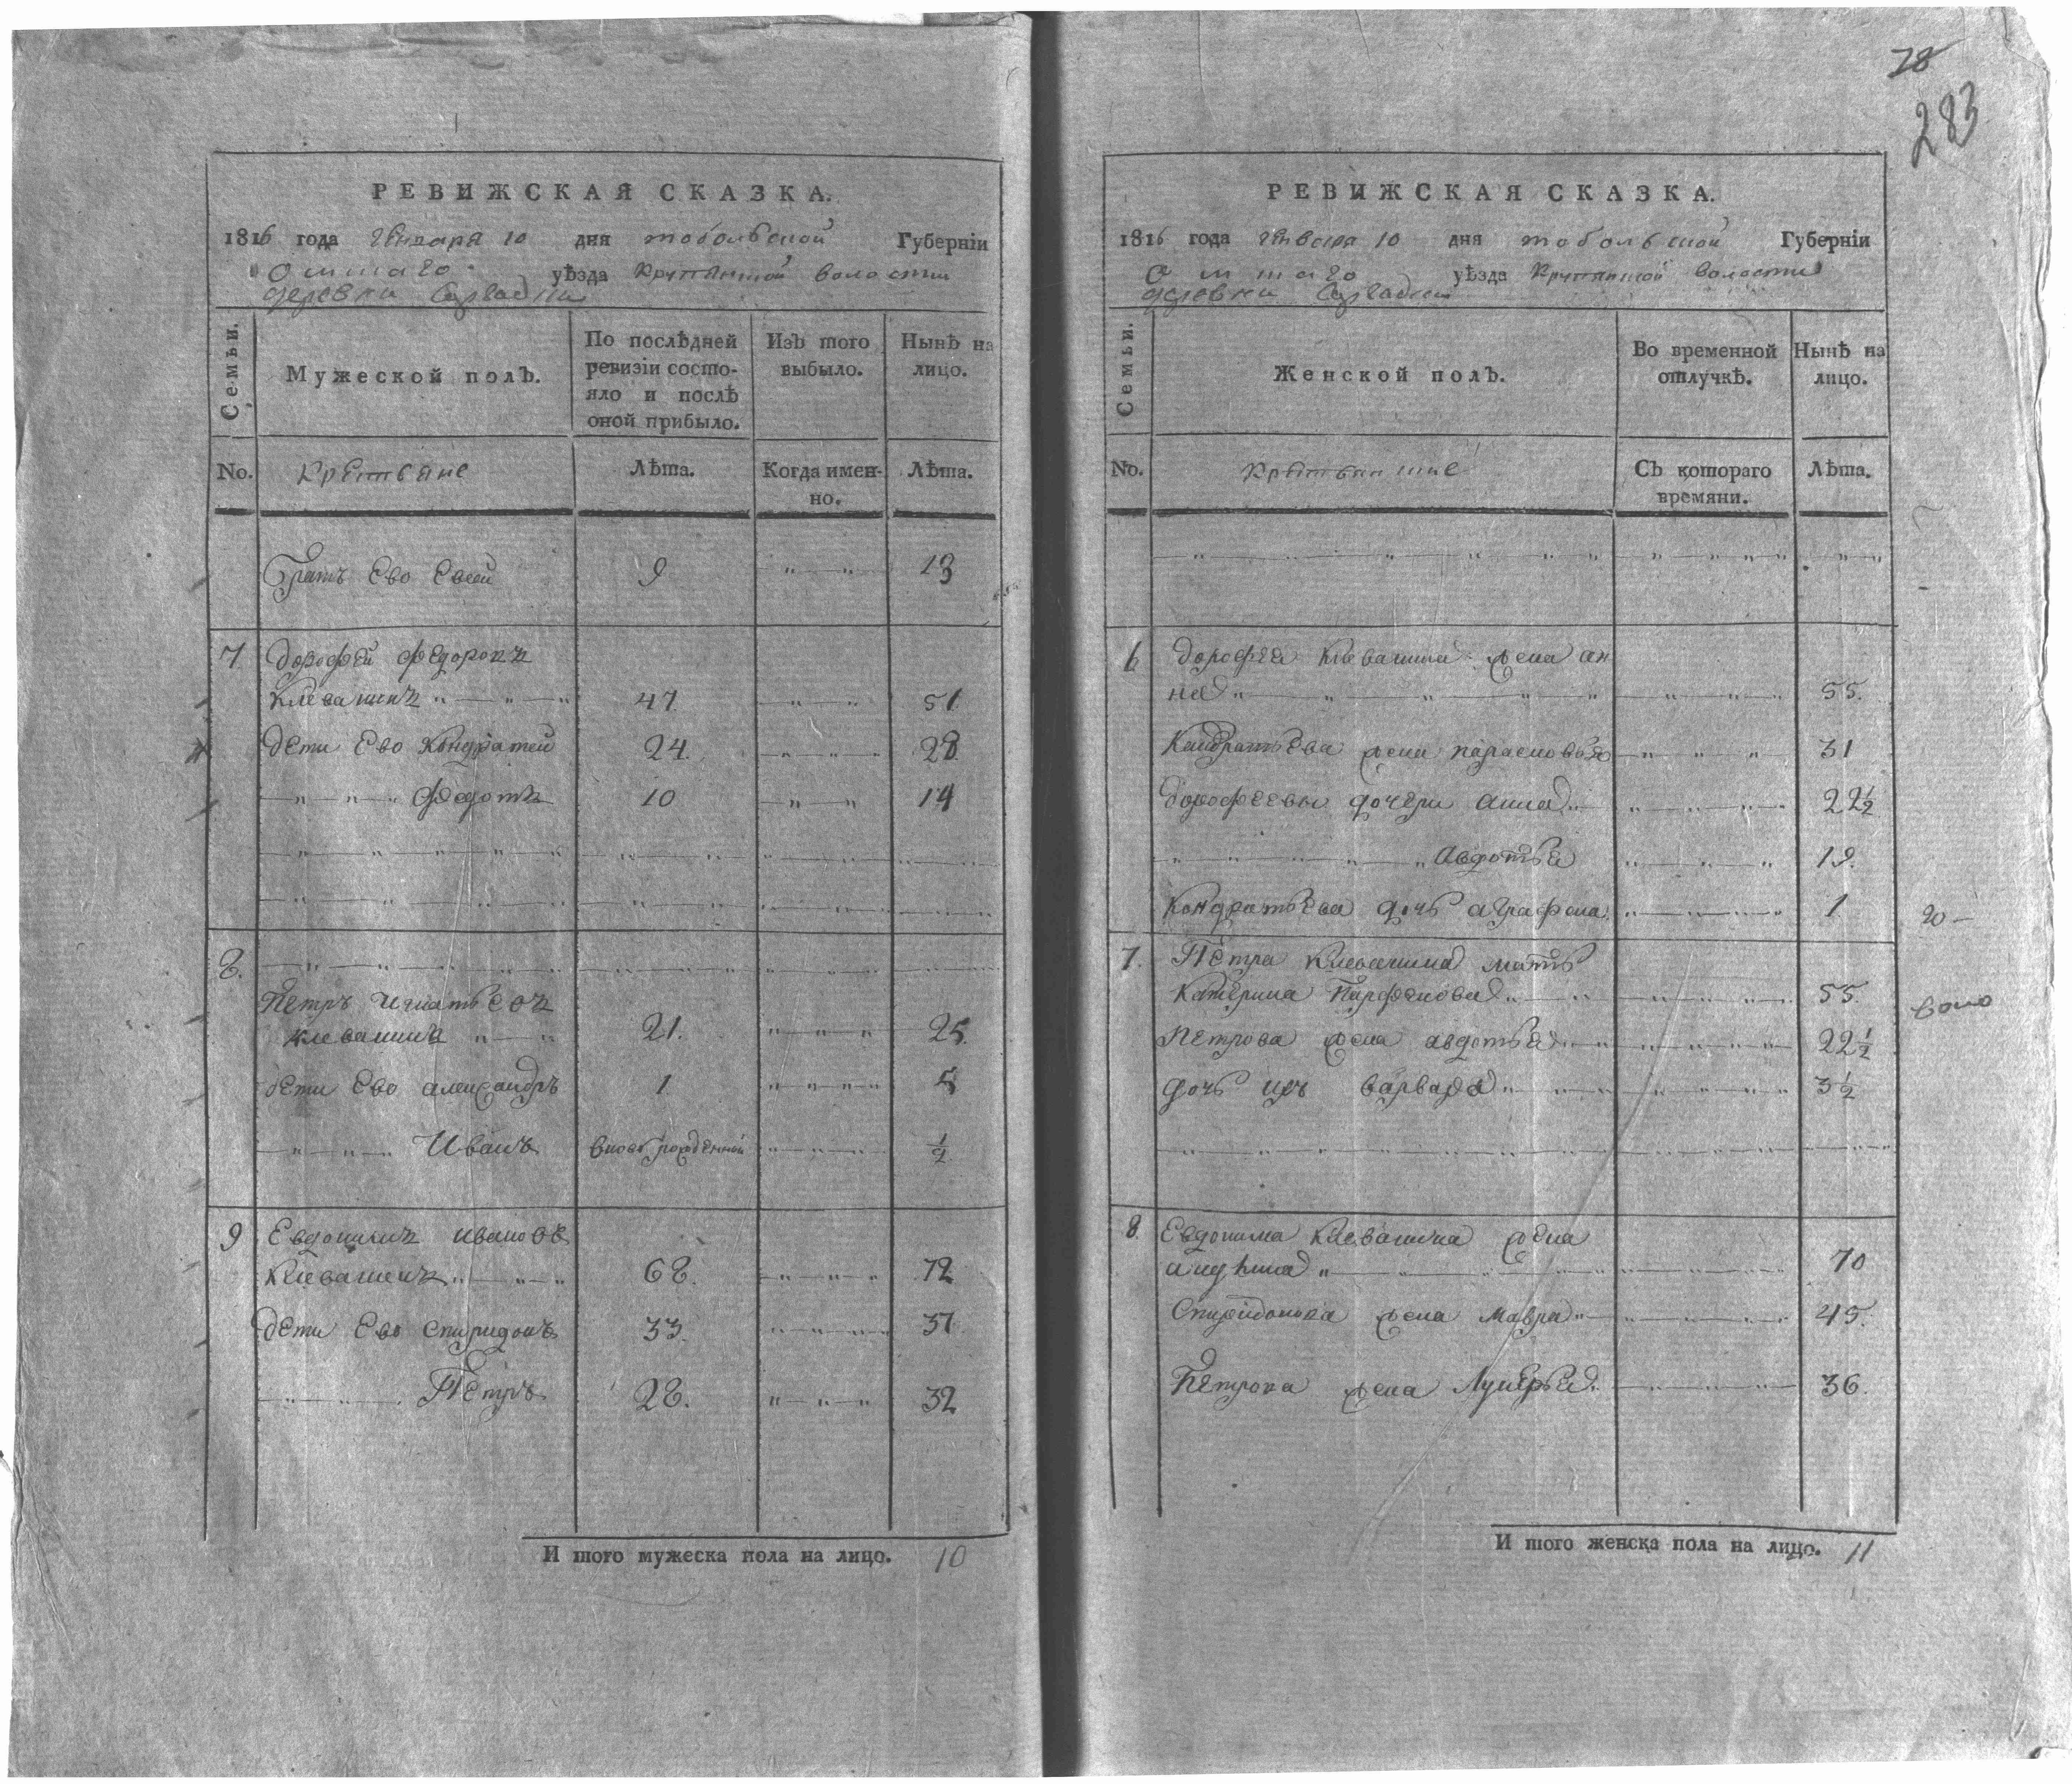 РЕВИЖСКАЯ СКАЗКА.
1816 года Генваря 10 дня тобольской Губернїи
Омскаго уѣзда Крупянской волости
деревни
Семьи.
Мужеской полъ.
По послѣдней ревизїи состояло и послѣ оной прибыло.
Изъ того выбыло.
Нынѣ на лицо.
No. Крестьяне
Лѣта.
Когда именно.
Лѣта.
Братъ Ево Евсей 9 13
7. дорофей Федоровъ
Клеванинъ 47. 51
дети Ево Кондратей 24. 28
Федотъ 10 14
8.
Петръ Игнатьевъ
клеванинъ 21. 25.
дети Ево александръ 1 5
Иванъ вновь рожденной ½
9 Евдокимъ ивановъ
Клеванинъ 68. 72
дети Ево спиридонъ 33. 37
Петръ 28. 32
И того мужеска пола на лицо. 10
28
283
РЕВИЖСКАЯ СКАЗКА.
1816 года генваря 10 дня тобольской Губернїи
Омскаго уѣзда Крупянской волости
деревни
Семьи.
Женской полъ.
Во временной отлучкѣ.
Нынѣ на лицо.
No. Крестьянские
Съ котораго времяни.
Лѣта.
6 дорофея Клеванина жена ан
на 55.
Кандратьева жена парасковья 31
дорофеевы дочери анна 22½
авдотья 19.
Кондратьева дочь аграфена 1
20 –
7. Петра Клеванина мать
Катерина Парфенова 55.
Петрова жена авдотья 22½
дочь ихъ варвара 3½
8. Евдокима Клеванина жена
70
Спиридонова жена Мавра 45.
Петрова жена Лукерья 36.
И того женска пола на лицо. 11